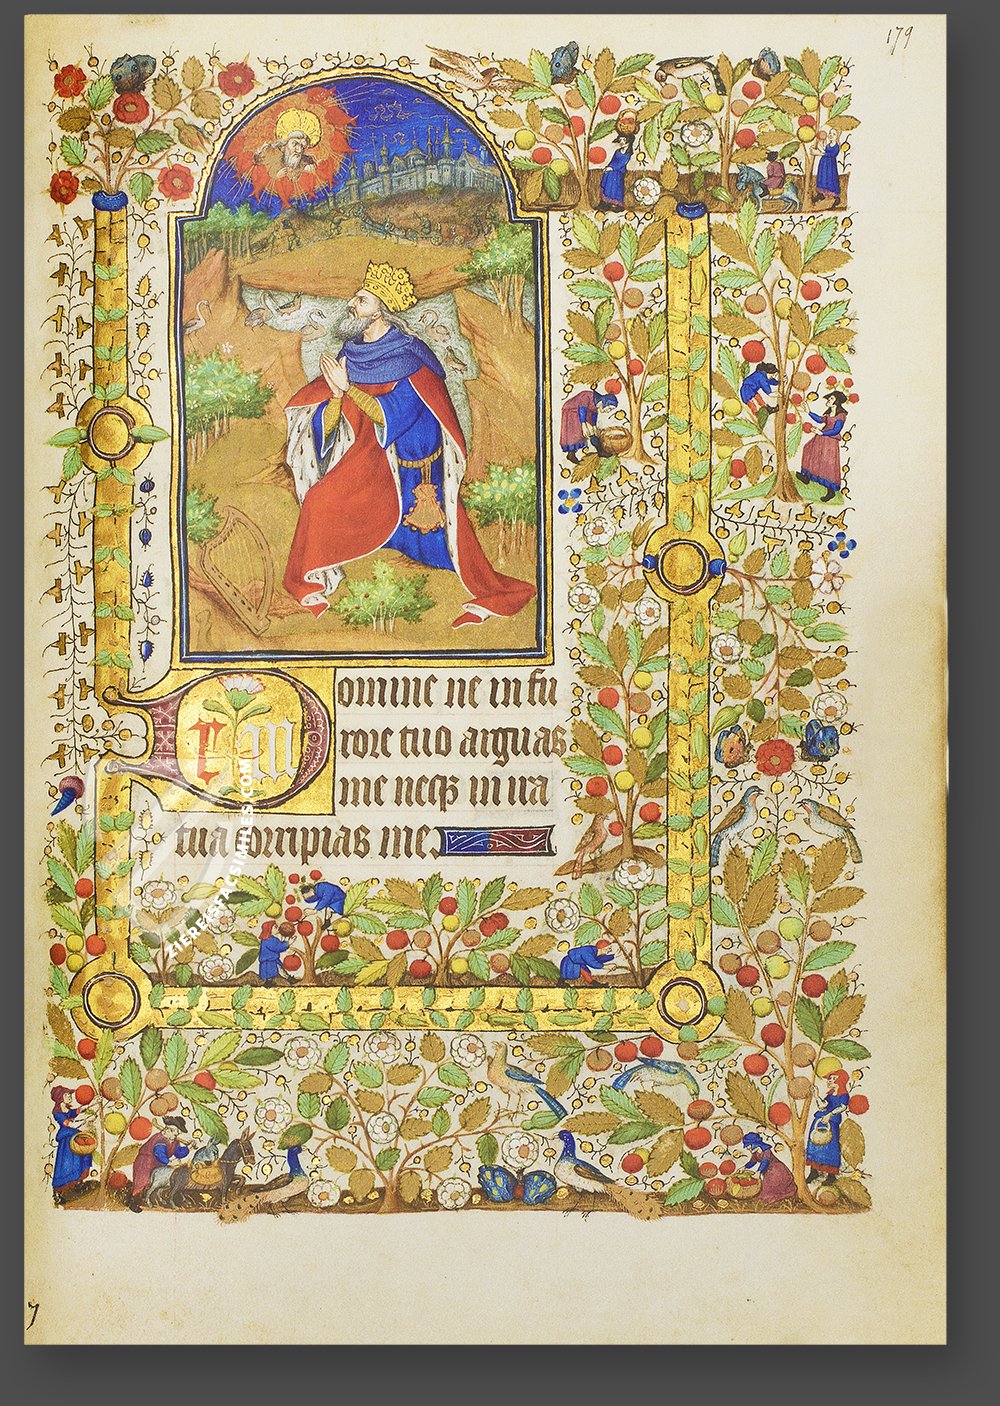 179
Domine ne in fu
rore tuo arguas
me neqꝫ in ira
tua corripias me
ZIEREIS FACSIMILES.COM